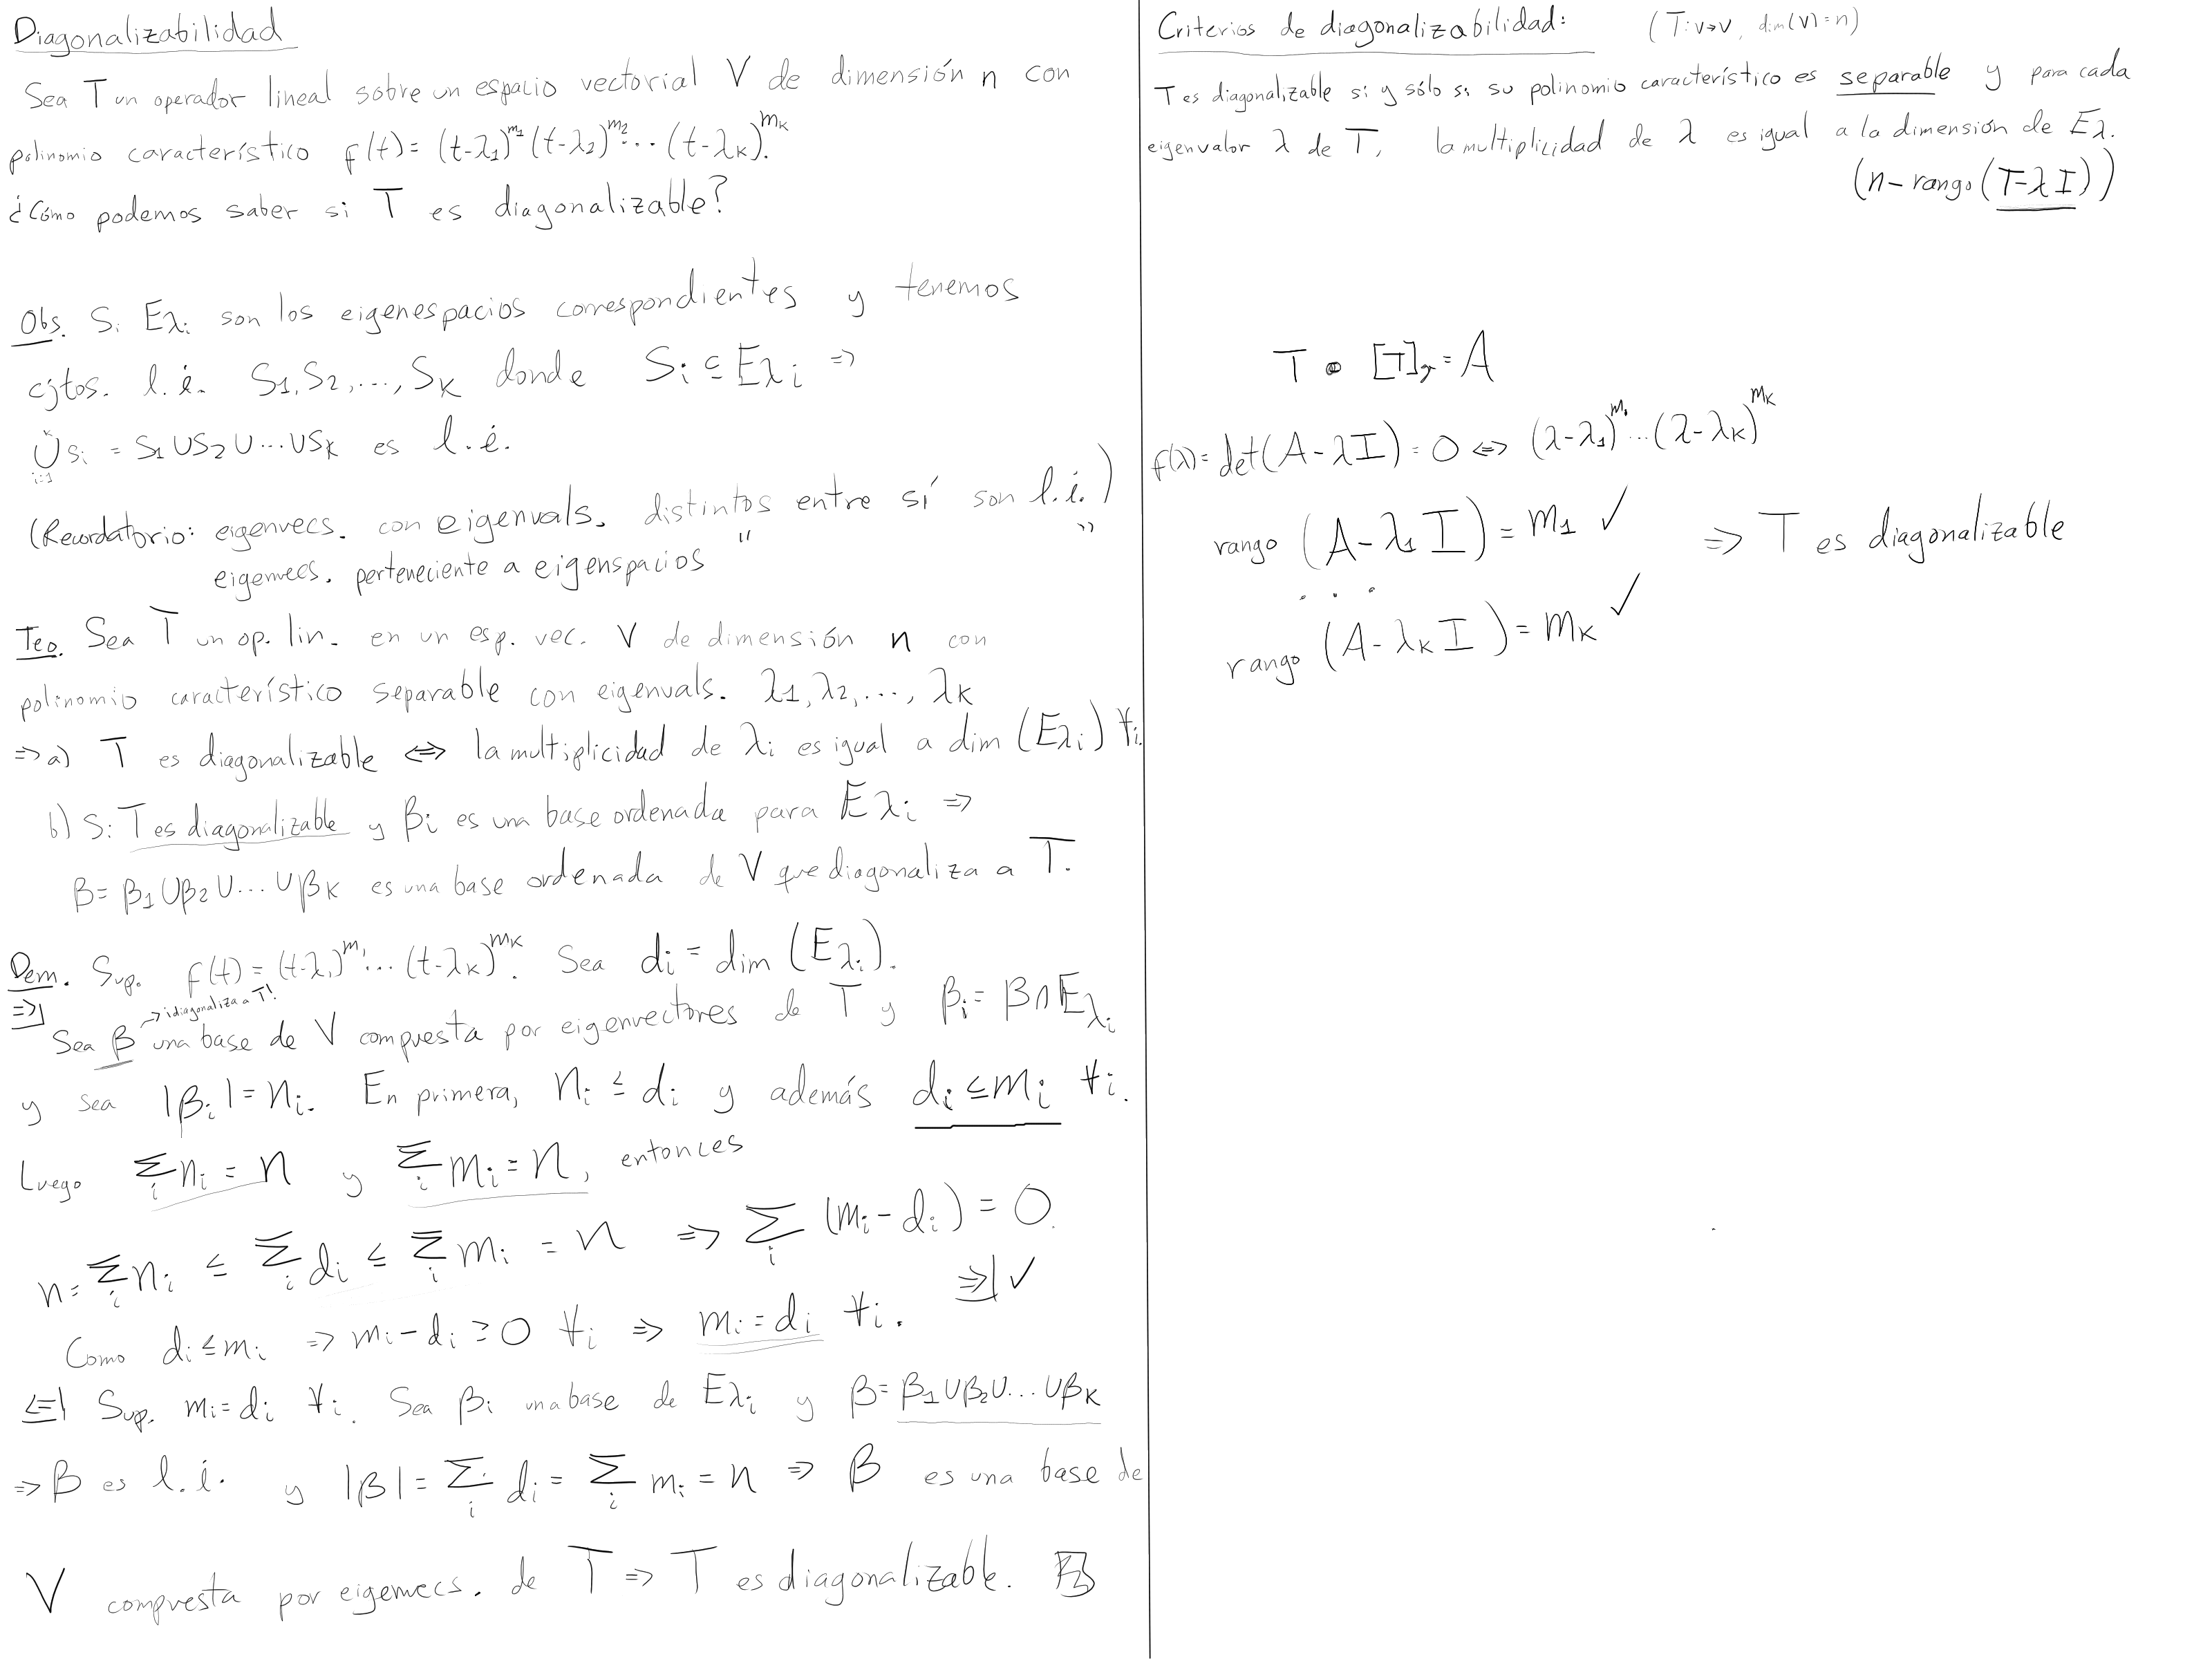 Diagonalizabilidad
Sea T un operador lineal sobre un espacio vectorial V de dimensión n con
polinomio característico f(t) = (t-λ₁)^m₁ (t-λ₂)^m₂ ... (t-λₖ)^mₖ.
¿Cómo podemos saber si T es diagonalizable?
Obs. Si Eλᵢ son los eigenespacios correspondientes y tenemos
cjtos. l.i. S₁, S₂, ..., Sₖ donde Sᵢ ⊆ Eλᵢ ⇒
⋃ᵢ₌₁ᵏ Sᵢ = S₁ ∪ S₂ ∪ ... ∪ Sₖ es l.i.
(Recordatorio: eigenvecs. con eigenvals. distintos entre sí son l.i.)
eigenvecs. perteneciente a eigenspacios " "
Teo. Sea T un op. lin. en un esp. vec. V de dimensión n con
polinomio característico separable con eigenvals. λ₁, λ₂, ..., λₖ
⇒ a) T es diagonalizable ⇔ la multiplicidad de λᵢ es igual a dim (Eλᵢ) ∀i.
b) Si T es diagonalizable y βᵢ es una base ordenada para Eλᵢ ⇒
β = β₁ ∪ β₂ ∪ ... ∪ βₖ es una base ordenada de V que diagonaliza a T.
Dem. Sup. f(t) = (t-λ₁)^m₁ ... (t-λₖ)^mₖ. Sea dᵢ = dim (Eλᵢ).
⇒| → ¡diagonaliza a T!
Sea β una base de V compuesta por eigenvectores de T y βᵢ = β ∩ Eλᵢ
y sea |βᵢ| = nᵢ. En primera, nᵢ ≤ dᵢ y además dᵢ ≤ mᵢ ∀i.
Luego Σᵢ nᵢ = n y Σᵢ mᵢ = n, entonces
n = Σᵢ nᵢ ≤ Σᵢ dᵢ ≤ Σᵢ mᵢ = n ⇒ Σᵢ (mᵢ - dᵢ) = 0.
⇒| ✓
Como dᵢ ≤ mᵢ ⇒ mᵢ - dᵢ ≥ 0 ∀i ⇒ mᵢ = dᵢ ∀i.
⇐| Sup. mᵢ = dᵢ ∀i. Sea βᵢ una base de Eλᵢ y β = β₁ ∪ β₂ ∪ ... ∪ βₖ
⇒ β es l.i. y |β| = Σᵢ dᵢ = Σᵢ mᵢ = n ⇒ β es una base de
V compuesta por eigenvecs. de T ⇒ T es diagonalizable.
Criterios de diagonalizabilidad: (T: V→V, dim(V) = n)
T es diagonalizable si y sólo si su polinomio característico es separable y para cada
eigenvalor λ de T, la multiplicidad de λ es igual a la dimensión de Eλ.
(n - rango (T-λI))
T [T]ᵧ = A
f(λ) = det(A - λI) = 0 ⇔ (λ-λ₁)^m₁ ... (λ-λₖ)^mₖ
rango (A - λ₁I) = m₁ ✓ ⇒ T es diagonalizable
. . .
rango (A - λₖI) = mₖ ✓